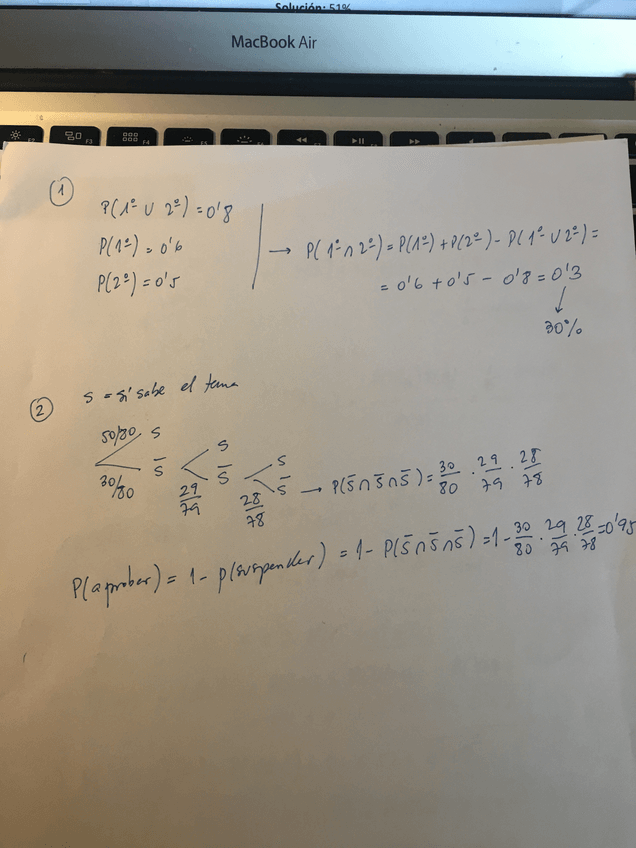 Solución: 51%
MacBook Air
F2 F3 F4 F5 F6 F7 F8 F9
①
P(1º ∪ 2º) = 0'8
P(1º) = 0'6
P(2º) = 0'5
→ P(1º ∩ 2º) = P(1º) + P(2º) - P(1º ∪ 2º) =
= 0'6 + 0'5 - 0'8 = 0'3
↓
30%
②
S = sí sabe el tema
50/80 S
30/80 S̄
S
29/79 S̄
S
28/78 S̄
→ P(S̄ ∩ S̄ ∩ S̄) = 30/80 · 29/79 · 28/78
P(aprobar) = 1 - P(suspender) = 1 - P(S̄ ∩ S̄ ∩ S̄) = 1 - 30/80 · 29/79 · 28/78 = 0'95